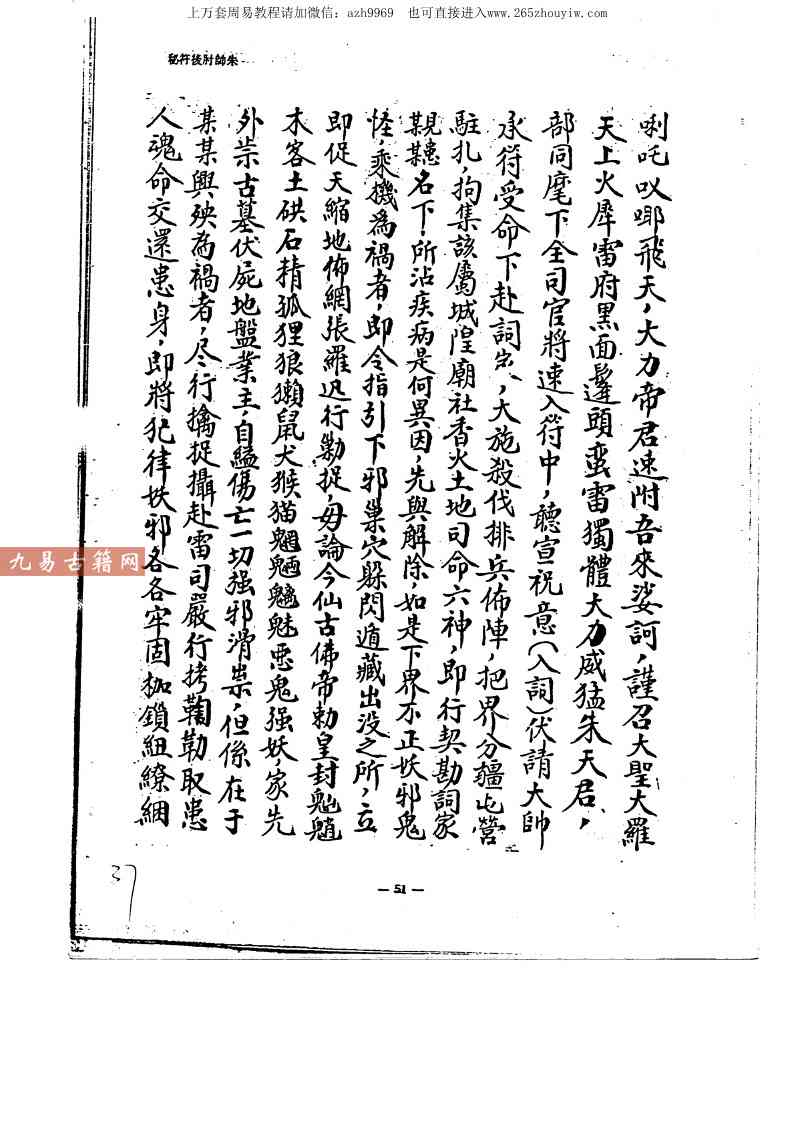 上万套周易教程请加微信：azh9969 也可直接进入www.265zhouyiw.com
朱帥肘後符秘
唎吒㕥㖿飛天，大力帝君速附吾來娑訶，謹召大聖大羅
天上火犀雷府黑面鬔頭蛮雷獨體大力威猛朱天君，
部同麾下全司官將速入符中，聽宣祝意（入詞）伏請大帥
承符受命下赴詞，大施殺伐排兵佈陣，把界分疆屯營
駐扎，拘集該屬城隍廟社香火土地司命六神，即行契勘詞家
名下所沾疾病是何異因，先與解除如是下界不正妖邪鬼
怪，乘機為禍者，即令指引下邪巢穴躲閃遁藏出沒之所，立
即促天縮地佈網張羅迅行勦捉，毋論今仙古佛帝勅皇封魈魋
木客土硔石精狐狸狼獺鼠犬猴猫魍魎魑魅惡鬼强妖，家先
外祟古墓伏屍地盤業主，自縊傷亡一切强邪滑祟，但係在于
某某興殃為禍者，尽行擒捉攝赴雷司嚴行拷鞫勒取患
人魂命交還患身，即將犯律妖邪各各牢固枷鎖紐繚綑
九易古籍网
— 51 —
37